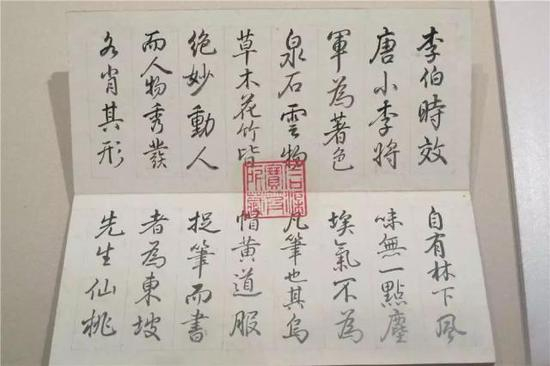 李伯時效
唐小李將
軍為著色
泉石雲物
草木花竹皆
絕妙動人
而人物秀發
各肖其形
自有林下風
味無一點塵
埃氣不為
凡筆也其烏
帽黃道服
捉筆而書
者為東坡
先生仙桃